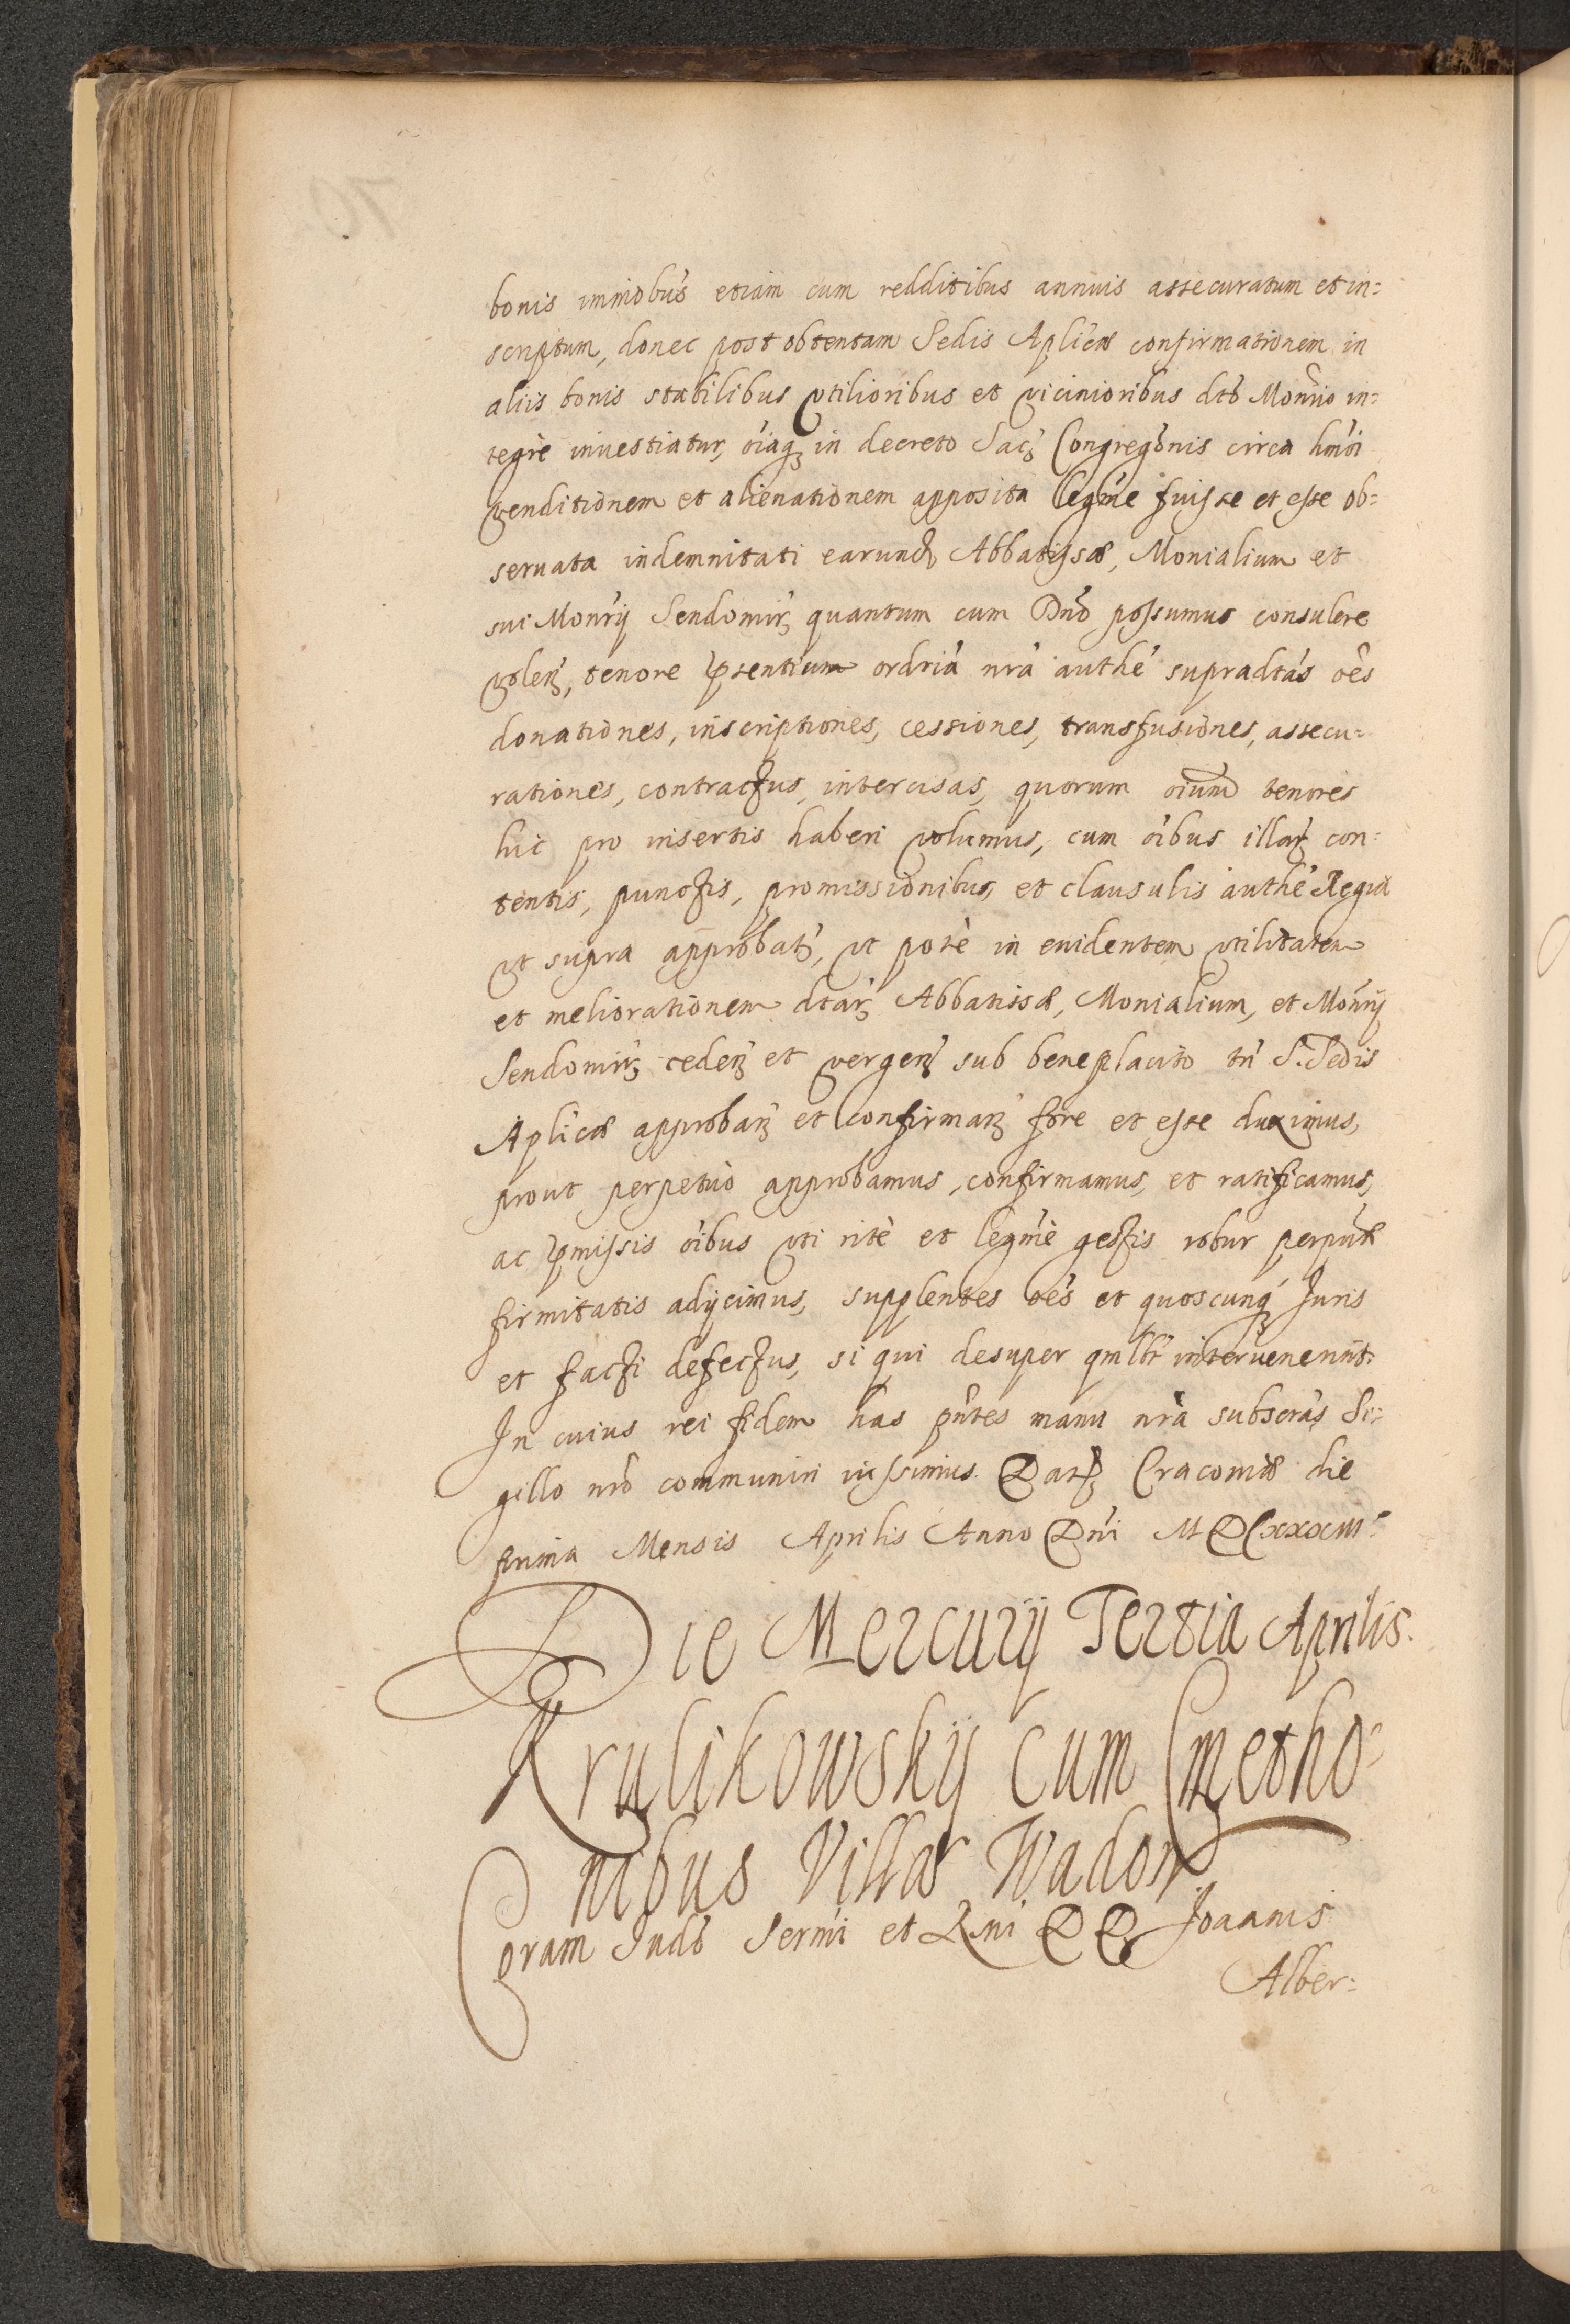 bonis immobus etiam cum redditibus annuis assecuratum et in=
scriptum, donec post obtentam Sedis Aplicæ confirmationem in
aliis bonis stabilibus vtilioribus et vicinioribus dto Monrio in=
tegrè inuestiatur, oiaq in decreto Sac Congregonis circa hmoi
venditionem et alienationem apposita legme fuisse et esse ob=
seruata indemnitati earund Abbatissæ, Monialium et
sui Monrij Sendomir quantum cum Dno possumus consulere
volen, tenore pntentium ordria nra authe supradtas oes
donationes, inscriptiones, cessiones, transfusiones, assecu=
rationes, contractus, intercisas, quorum oium tenores
hic pro insertis haberi volumus, cum oibus illar con=
tentis, punctis, promissionibus, et clausulis authe Regia
vt supra approbat, vt potè in euidentem vtilitatem
et meliorationem dtar Abbatissæ, Monialium, et Monrij
Sendomir, ceden et vergen sub beneplacito tn S. Sedis
Aplicæ approban et confirman fore et esse duximus,
prout perpetuò approbamus, confirmamus, et ratificamus,
ac pmissis oibus vti ritè et legmè gestis robur perpuæ
firmitatis adijcimus, supplentes oes et quoscunq Juris
et facti defectus, si qui desuper qmlbt interuenerunt.
In cuius rei fidem has pntes manu nra subscras Si=
gillo nro communiri iussimus. Dat Cracouiæ die
prima Mensis Aprilis Anno Dni MDCxxxiii
Die Mercurij Tertia Aprilis.
Krulikowskij cum Cmetho=
nibus Villæ Wadow
Coram Judo Sermi et Rmi DD Joannis
Alber=